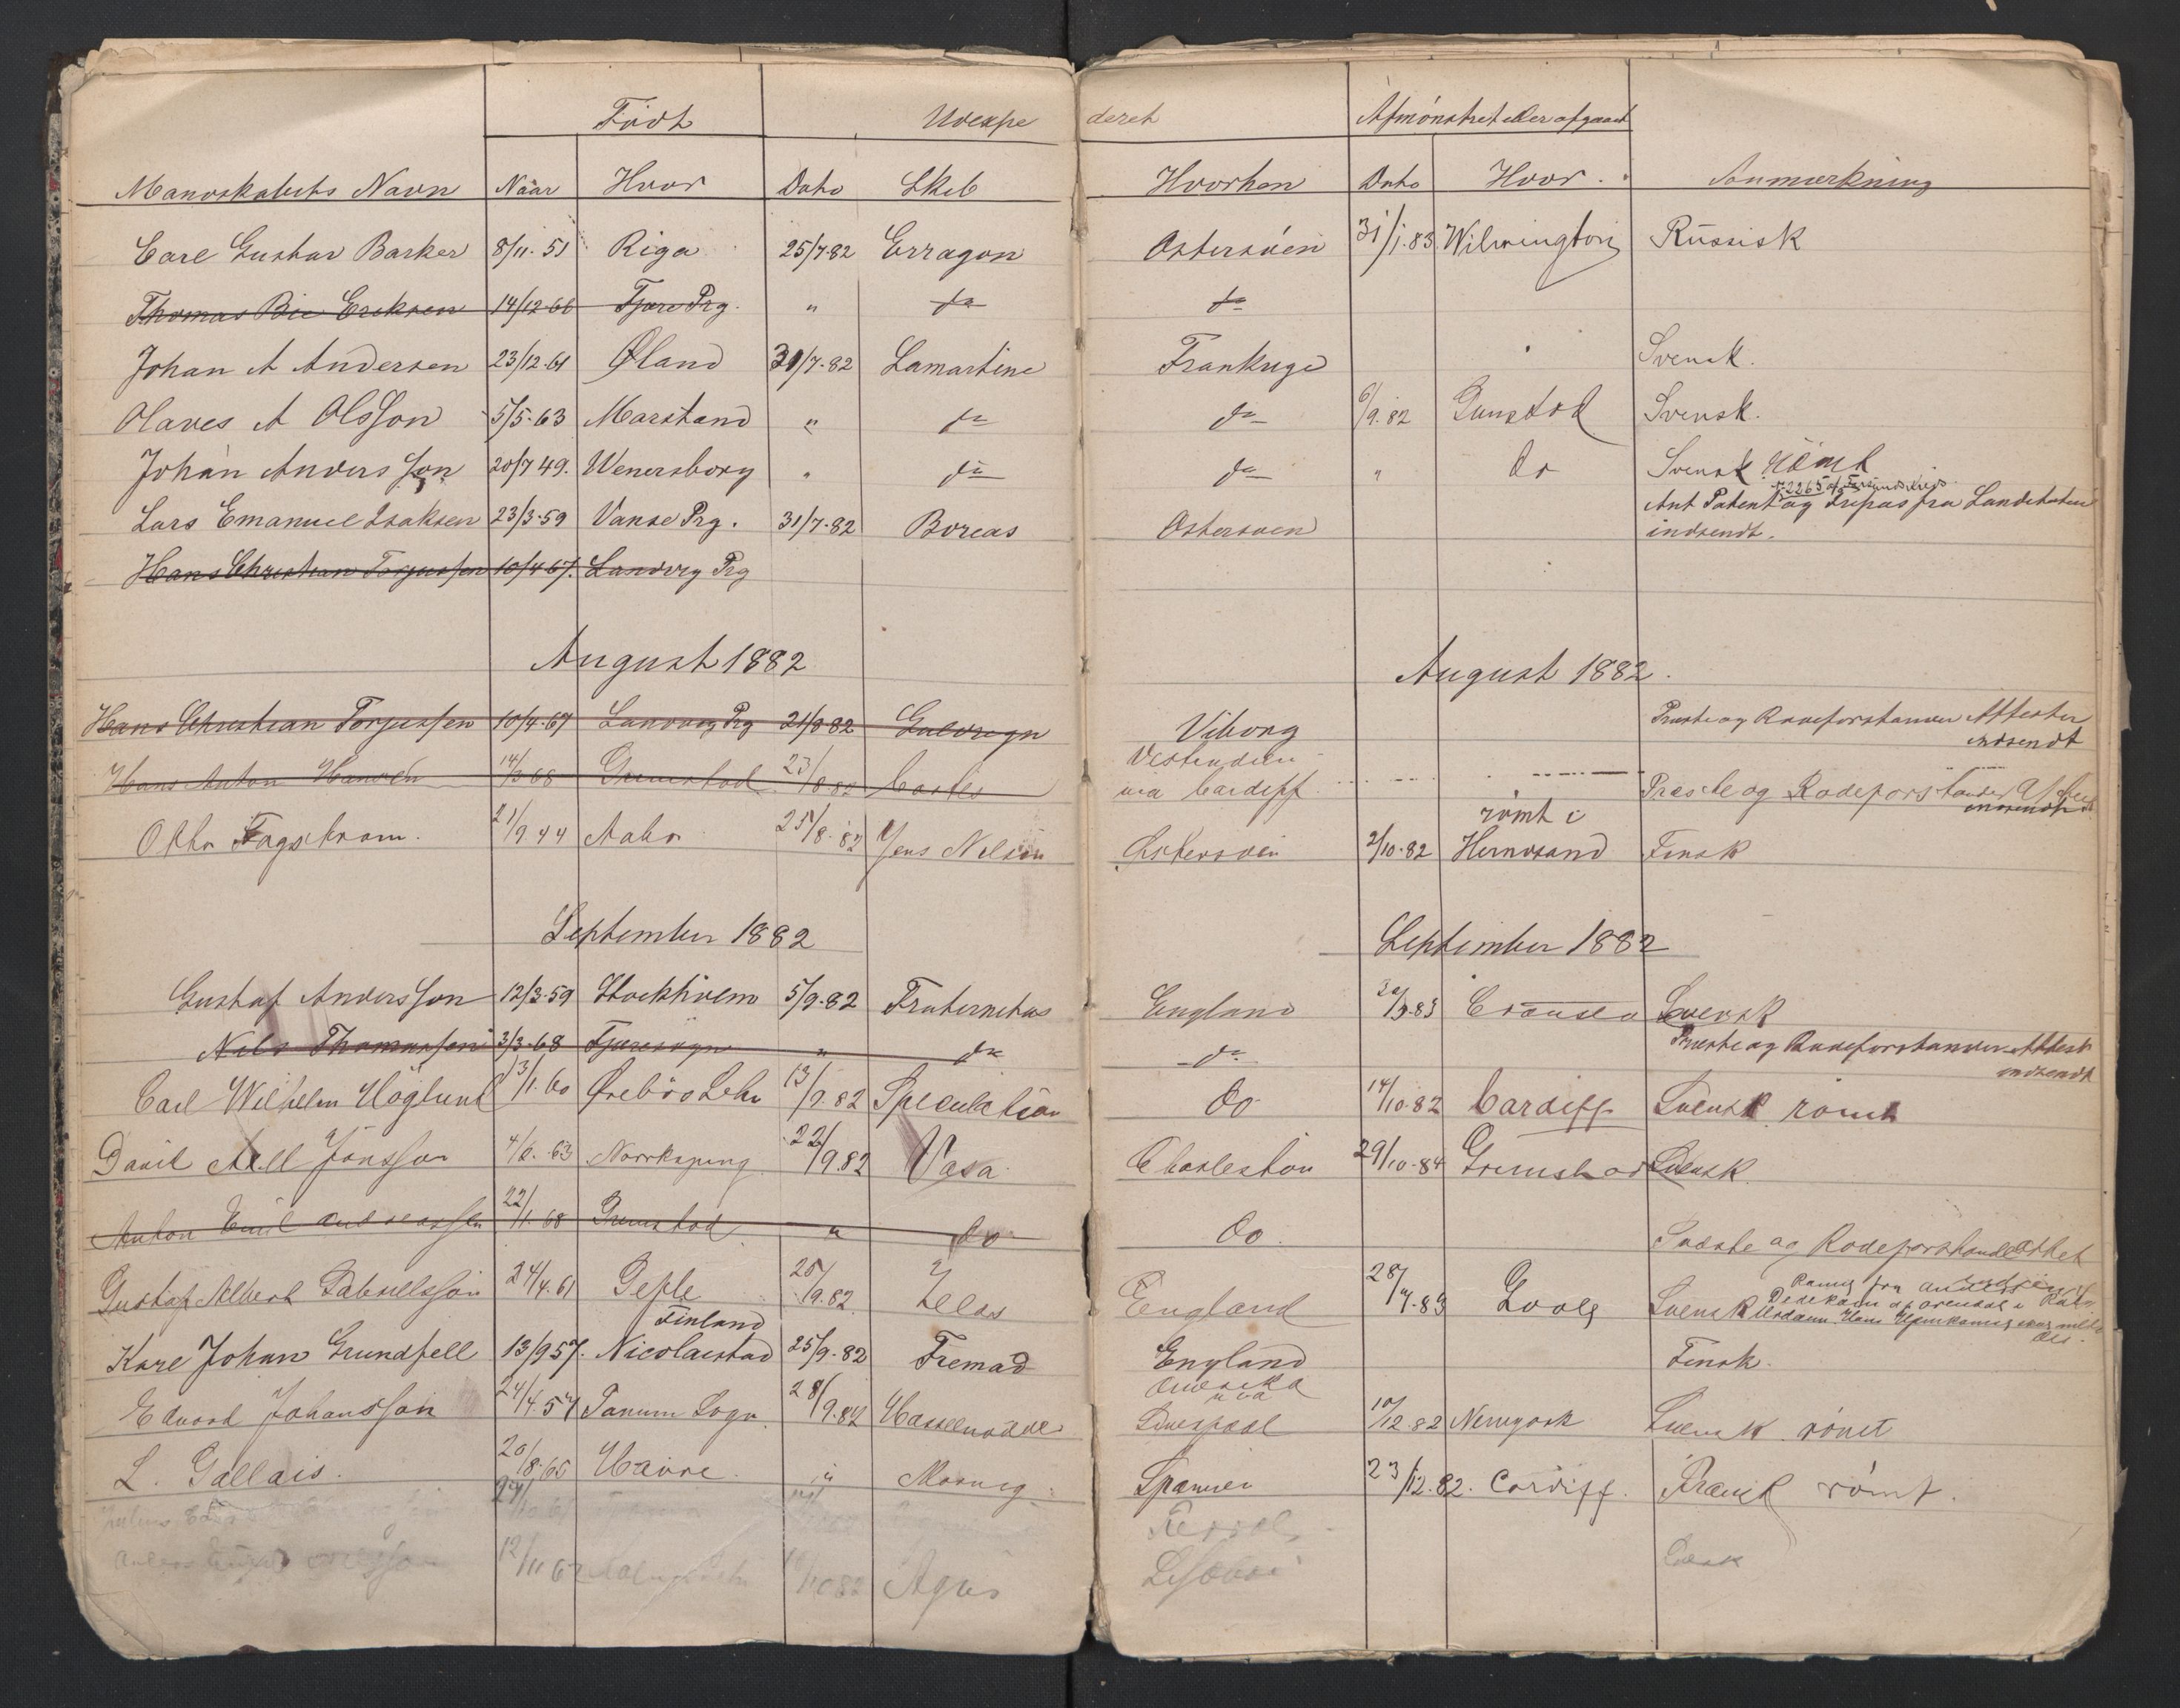 Født Udexpe deret Afmönstret eller afgaaet
Mandskabets Navn Naar Hvor Dato Skib Hvorhen Dato Hvor. Anmærkning
Carl Gustav Barker 8/11-51 Riga 25/7-82 Erragon Østersöen 31/1.83 Wilmington Russisk
Thomas Bie Eriksen 14/12-66 Fjære Prg. " do do
Johan A Andersen 23/12-61 Øland 31/7-82 Lamartine Frankrige Svensk.
Olaves A Olsson 5/5-63 Marstand " do do 6/9.82 Grimstad Svensk.
Johan Andersson 20/7 49. Wenersborg " do do " do Svensk römt
Lars Emanuel Isaksen 23/3-59 Vanse Prg. 31/7-82 Boreas Østersöen Ant Patent og Fripas fra
indsendt.
Hans Christian Torjussen 10/4 67. Landvig Prg
August 1882 August 1882.
Hans Christian Torjussen 10/4-67 Landvig Prg 21/8 82 Viborg Preste og Rodeforstander Attester
indsendt
Hans Anton Hansen 14/3 68 Grimstad 23/8-82 Vestindien
via Cardiff. Preste og Rodeforstander
indsendt
römt i
Otto Fagerstrom. 21/9 44 Aabo 25/8.82 Jens Nelson Østersöen 2/10-82 Hernosand Finsk
September 1882 September 1882
Gustaf Andersson 12/3-59 Stockholm 5/9-82 Fraternitas England Svensk
Nils Thomassen 3/3-68 Fjæresogn " do do Preste og Rodeforstander Attest
indsendt
Carl Wilhelm Höglund 13/1.60 Ørebro Lehn 13/9.82 Speculation do 14/10-82 Cardiff Svensk römt
David Axell Jönsson 4/6.63 Norrkøping 22/9.82 Vasa Charleston 29/10-84 Grimstad Svensk
Anton Emil Andreassen 22/1.68 Grimstad " do do.
Gustaf Albert Gabrielsson 24/4.61 Gefle 25/9.82 Zelos England 28/7.83 Goole Svensk
Finland
Karl Johan Grundfell 13/9 57. Nicolaistad 25/9-82 Fremad England Finsk.
America
via
Edvard Johansson 24/4.57 Tanum Sogn. 28/9.82 Hasselnødde Liverpool 10/12.82 Newyork Svensk. römt
L. Gallais. 20/8.65 Havre. " Spanien 23/12.82. Cardiff. Fransk römt.
12/11 67 16/10 82 Agnes Lissabon Svensk